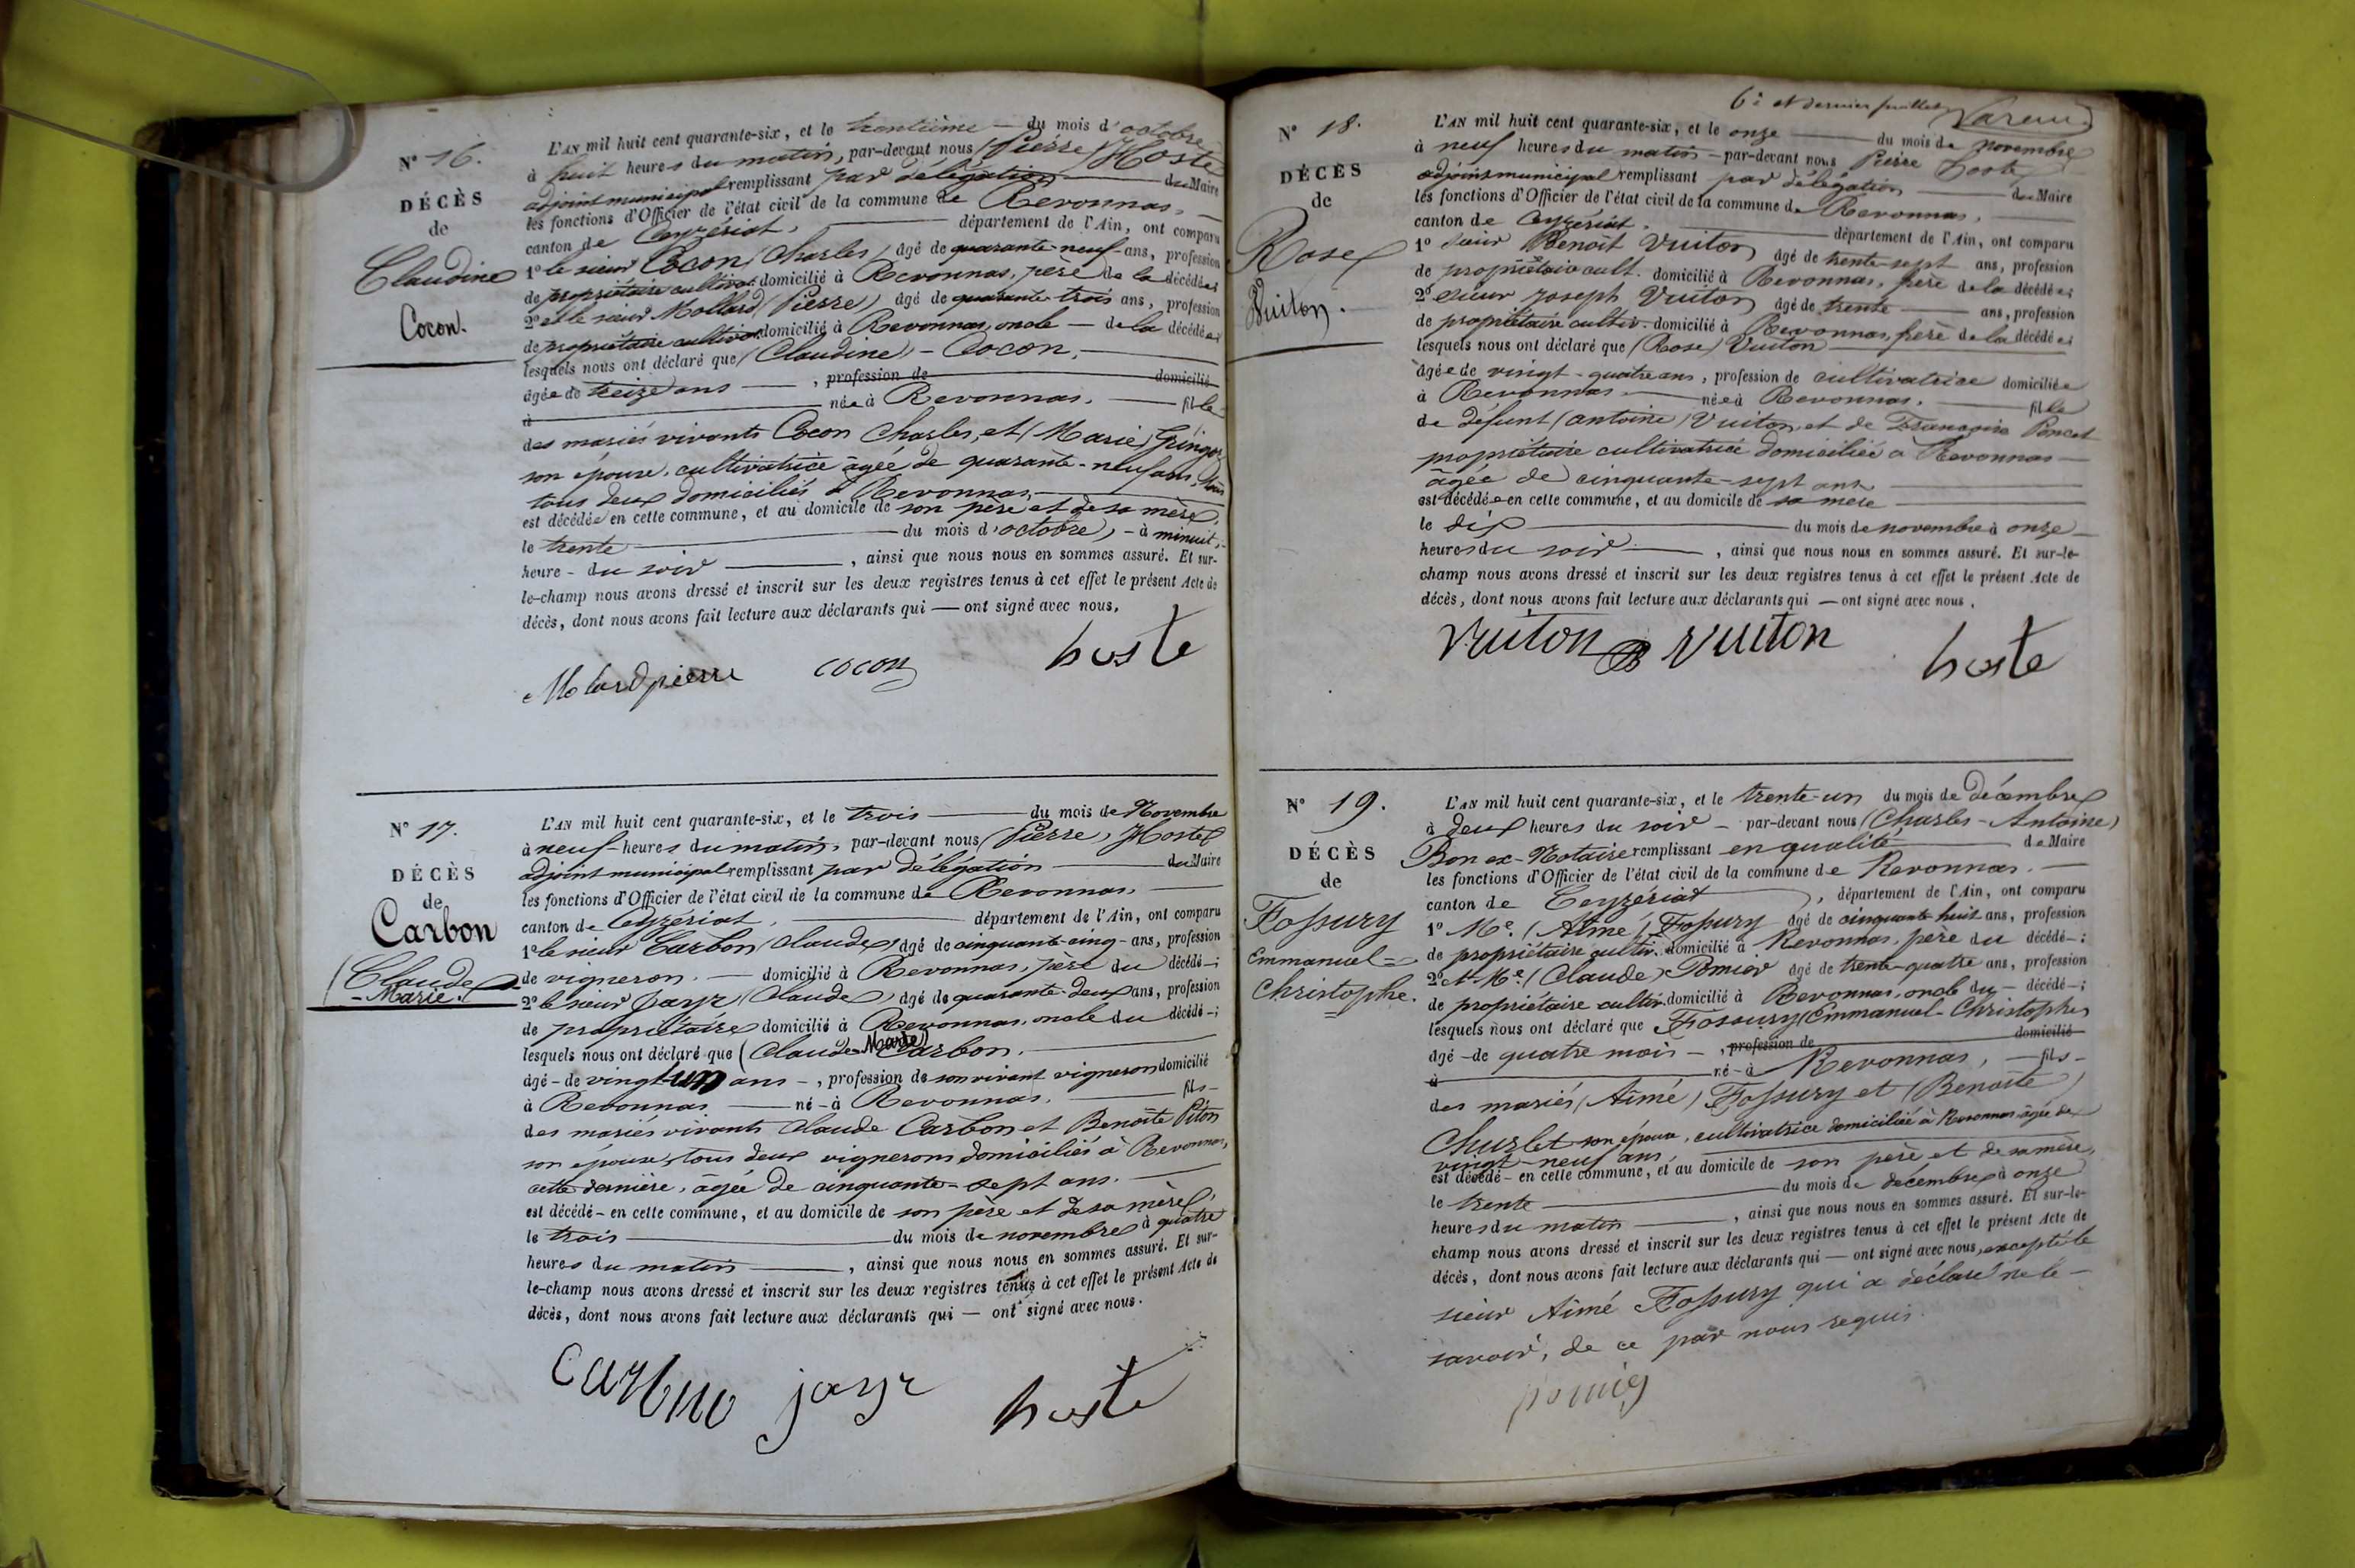 N° 16.
DÉCÈS
de
Claudine
Cocon.
L'AN mil huit cent quarante-six, et le trentième — du mois d'octobre
à huit heures du matin, par-devant nous (Pierre) Hoste
adjoint municipal remplissant par délégation — du Maire
les fonctions d'Officier de l'état civil de la commune de Revonnas. —
canton de Ceyzériat, — département de l'Ain, ont comparu
1° le sieur Cocon (Charles) âgé de quarante-neuf ans, profession
de propriétaire cultivat. domicilié à Revonnas, père de la décédée;
2° et le sieur Mollard (Pierre) âgé de quarante-trois ans, profession
de propriétaire cultivat. domicilié à Revonnas, oncle — de la décédée;
lesquels nous ont déclaré que (Claudine) - Cocon, —
âgée de treize ans —, profession de — domicilié
à — née à Revonnas. — fille
des mariés vivants Cocon Charles, et (Marie)
son épouse, cultivatrice âgée de quarante-neuf ans,
tous deux domiciliés à Revonnas, —
est décédée en cette commune, et au domicile de son père et de sa mère,
le trente — du mois d'octobre, - à minuit,
heure - du soir —, ainsi que nous nous en sommes assuré. Et sur-
le-champ nous avons dressé et inscrit sur les deux registres tenus à cet effet le présent Acte de
décès, dont nous avons fait lecture aux déclarants qui — ont signé avec nous.
Molard pierre cocon hoste
N° 17.
DÉCÈS
de
Carbon
(Claude
-Marie.)
L'AN mil huit cent quarante-six, et le trois — du mois de Novembre
à neuf heures du matin, par-devant nous (Pierre) Hoste
adjoint municipal remplissant par délégation — du Maire
les fonctions d'Officier de l'état civil de la commune de Revonnas —
canton de Ceyzériat, — département de l'Ain, ont comparu
1° le sieur Carbon (Claude) âgé de cinquante-cinq - ans, profession
de vigneron. — domicilié à Revonnas, père du décédé -;
2° le sieur Jayr (Claude) âgé de quarante-deux ans, profession
de propriétaire domicilié à Revonnas, oncle du décédé -;
lesquels nous ont déclaré que (Claude Marie) Carbon. —
âgé - de vingt-un ans -, profession de son vivant vigneron domicilié
à Revonnas — né - à Revonnas. — fils -
des mariés vivants Claude Carbon et Benoîte Piton
son épouse, tous deux vignerons domiciliés à Revonnas,
cette dernière, âgée de cinquante-sept ans. —
est décédé - en cette commune, et au domicile de son père et de sa mère,
le trois — du mois de novembre à quatre
heures du matin —, ainsi que nous nous en sommes assuré. Et sur-
le-champ nous avons dressé et inscrit sur les deux registres tenus à cet effet le présent Acte de
décès, dont nous avons fait lecture aux déclarants qui — ont signé avec nous.
Carbno jayr hoste
6e et dernier feuillet
N° 18.
DÉCÈS
de
Rose
Vuiton.
L'AN mil huit cent quarante-six, et le onze — du mois de novembre
à neuf heures du matin - par-devant nous Pierre Hoste
adjoint municipal remplissant par délégation — du Maire
les fonctions d'Officier de l'état civil de la commune de Revonnas. —
canton de Ceyzériat. — département de l'Ain, ont comparu
1° sieur Benoît Vuiton âgé de trente-sept ans, profession
de propriétaire cult. domicilié à Revonnas, frère de la décédée;
2° sieur Joseph Vuiton âgé de trente — ans, profession
de propriétaire cultiv. domicilié à Revonnas, frère de la décédée;
lesquels nous ont déclaré que (Rose) Vuiton —
âgée de vingt-quatre ans, profession de cultivatrice domiciliée
à Revonnas. — née à Revonnas. — fille
de défunt (Antoine) Vuiton et de Françoise Poncet
propriétaire cultivatrice domiciliée à Revonnas —
âgée de cinquante-sept ans —
est décédée en cette commune, et au domicile de sa mère —
le dix — du mois de novembre à onze —
heures du soir —, ainsi que nous nous en sommes assuré. Et sur-le-
champ nous avons dressé et inscrit sur les deux registres tenus à cet effet le présent Acte de
décès, dont nous avons fait lecture aux déclarants qui — ont signé avec nous.
Vuiton B Vuiton hoste
N° 19.
DÉCÈS
de
Fossury
Emmanuel =
Christophe.
L'AN mil huit cent quarante-six, et le trente-un du mois de décembre
à deux heures du soir - par-devant nous (Charles-Antoine)
Bon ex-Notaire remplissant en qualité — de Maire
les fonctions d'Officier de l'état civil de la commune de Revonnas. —
canton de Ceyzériat —, département de l'Ain, ont comparu
1° Me. (Aimé) Fossury âgé de cinquante huit ans, profession
de propriétaire cultiv. domicilié à Revonnas, père du décédé -;
2° et Me. (Claude) Pomier âgé de trente-quatre ans, profession
de propriétaire cultiv. domicilié à Revonnas, oncle du - décédé -;
lesquels nous ont déclaré que Fossury (Emmanuel-Christophe)
âgé - de quatre mois -, profession de — domicilié
à — né - à Revonnas, — fils -
des mariés (Aimé) Fossury et (Benoîte)
Churlet son épouse, cultivatrice domiciliée à Revonnas âgée de
vingt-neuf ans, —
est décédé - en cette commune, et au domicile de son père et de sa mère,
le trente — du mois de décembre à onze
heures du matin —, ainsi que nous nous en sommes assuré. Et sur-le-
champ nous avons dressé et inscrit sur les deux registres tenus à cet effet le présent Acte de
décès, dont nous avons fait lecture aux déclarants qui — ont signé avec nous, excepté le
sieur Aimé Fossury qui a déclaré ne le —
savoir, de ce par nous requis.